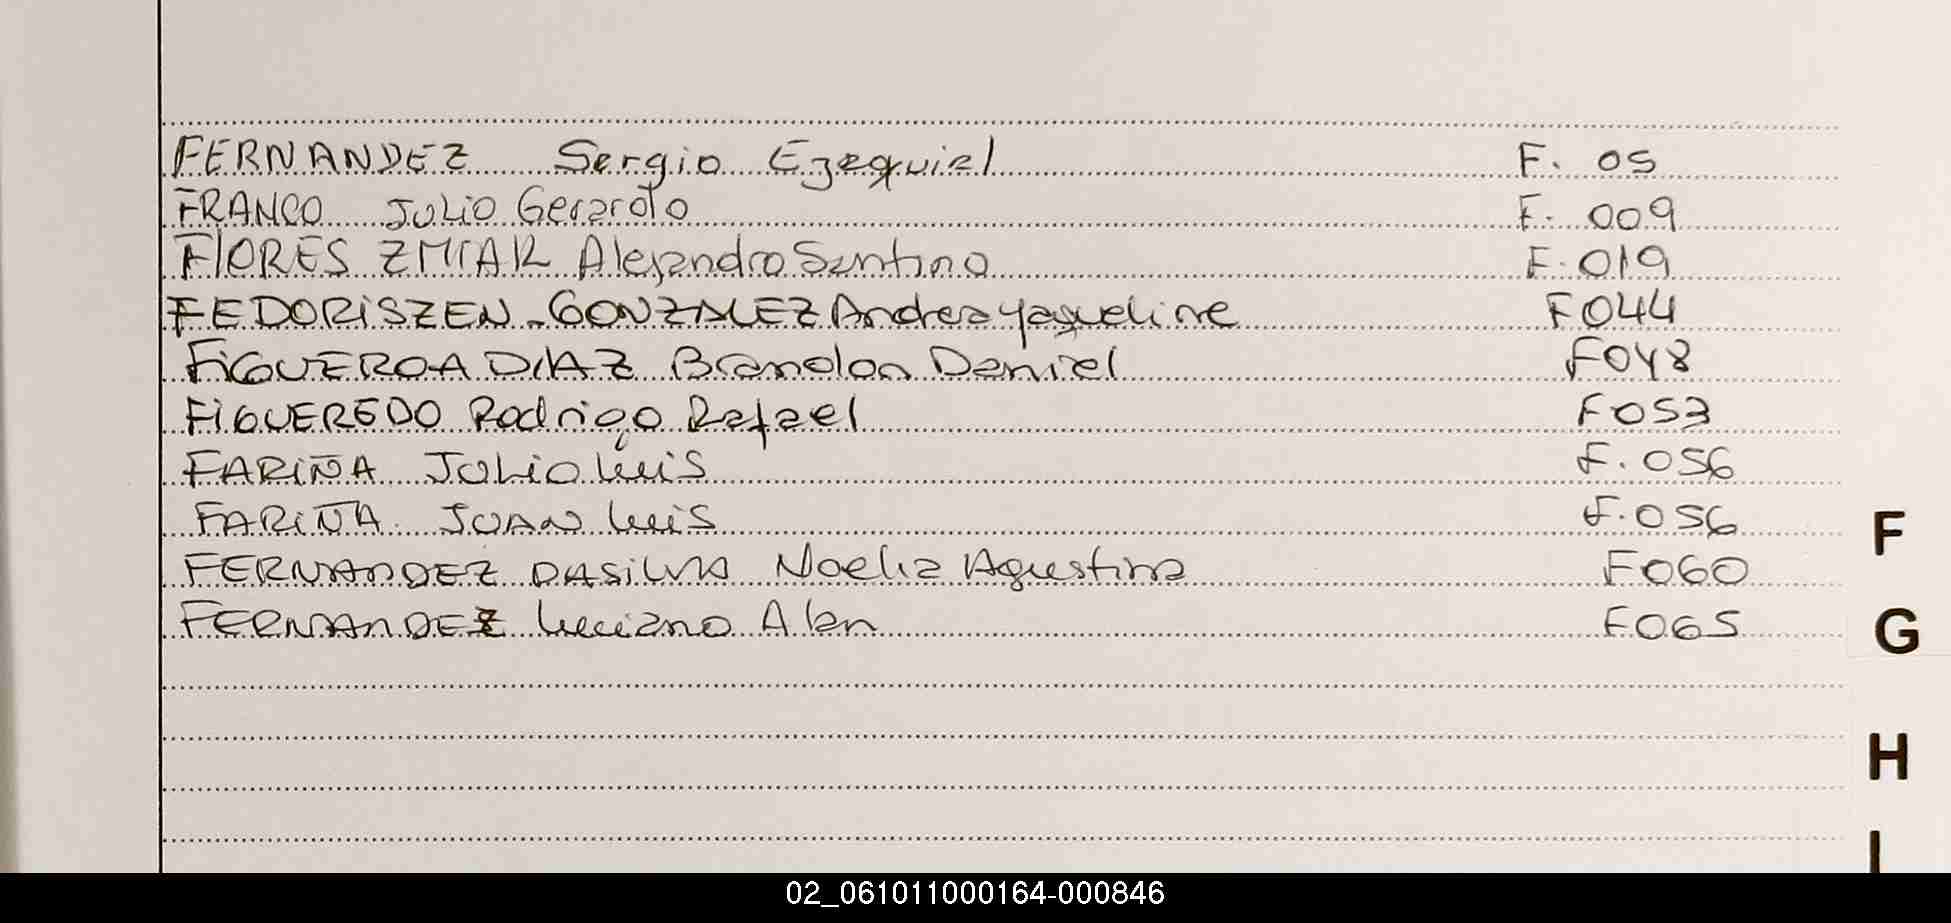 FERNANDEZ Sergio Ezequiel F. 05
FRANCO JULIO Gerardo F. 009
FLORES ZMIAK Alejandro Santino F. 019
FEDORISZEN - GONZALEZ Andrea Yaqueline F044
FiGUEROA DIAZ Brandon Daniel F048
FiGUEREDO Rodrigo Rafael F053
FARIÑA JULIO Luis F. 056
FARIÑA JUAN Luis F. 056
FERNANDEZ DASILVA Noelia Agustina F060
FERNANDEZ Luciano Alan F065
F
G
H
I
02_061011000164-000846